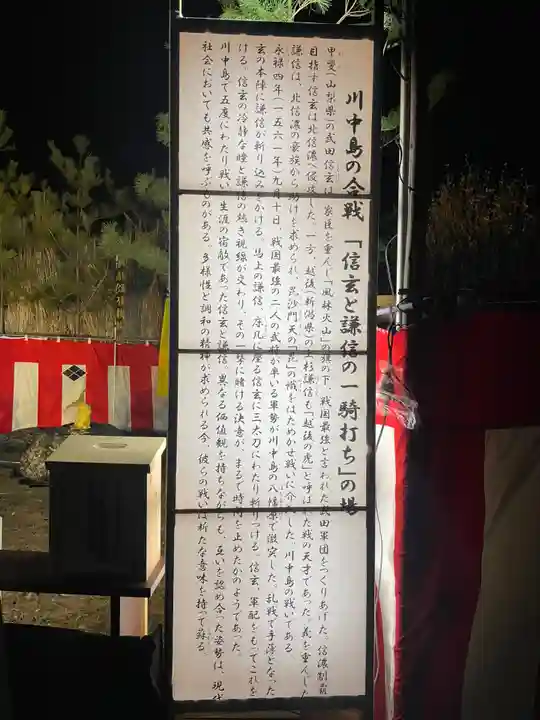 川中島の合戦 「信玄と謙信の一騎打ち」の場
甲斐(山梨県)の武田信玄は、家臣を重んじ「風林火山」の旗の下、戦国最強と言われた武田軍団をつくりあげた。信濃制覇
目指す信玄は北信濃へ侵攻した。一方、越後(新潟県)の上杉謙信も「越後の虎」と呼ばれた戦の天才であった。義を重んじた
謙信は、北信濃の豪族から助けを求められ、毘沙門天の「毘」の幟をはためかせ戦いに介入した。川中島の戦いである
永禄四年(一五六一年)九月十日、戦国最強の二人の武将が率いる軍勢が川中島の八幡原で激突した。乱戦で手薄となった
玄の本陣に謙信が斬り込みをかける。馬上の謙信、床几に座る信玄に三太刀にわたり斬りつける。信玄、軍配をもってこれを
ける。信玄の冷静な瞳と謙信の熱き視線が交わり、その一撃に賭ける決意が、まるで時間を止めたかのようであった。
川中島で五度にわたり戦い、生涯の宿敵であった信玄と謙信。異なる価値観を持ちながらも、互いを認め合った姿勢は、現代
社会においても共感を呼ぶものがある。多様性と調和の精神が求められる今、彼らの戦いは新たな意味を持って蘇る。